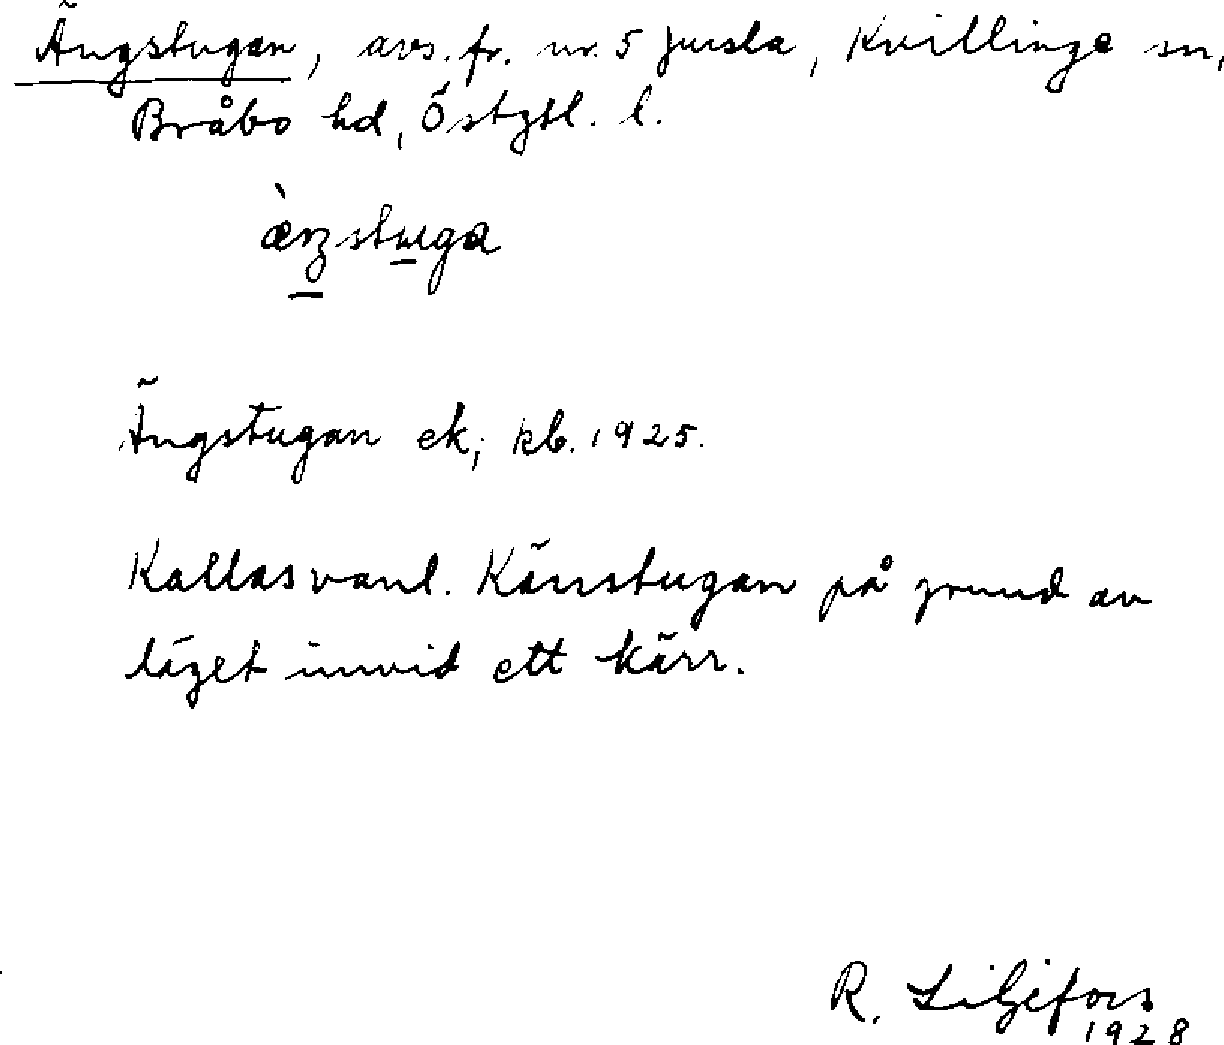 Ängstugan, avs. fr. nr. 5 Jursla, Kvillinge sn,
Bråbo hd, Östgtl. l.
ængstuga
Ängstugan ek; kb. 1925.
Kallas vanl. Kärrstugan på grund av
läget invid ett kärr.
R. Liljefors
1928